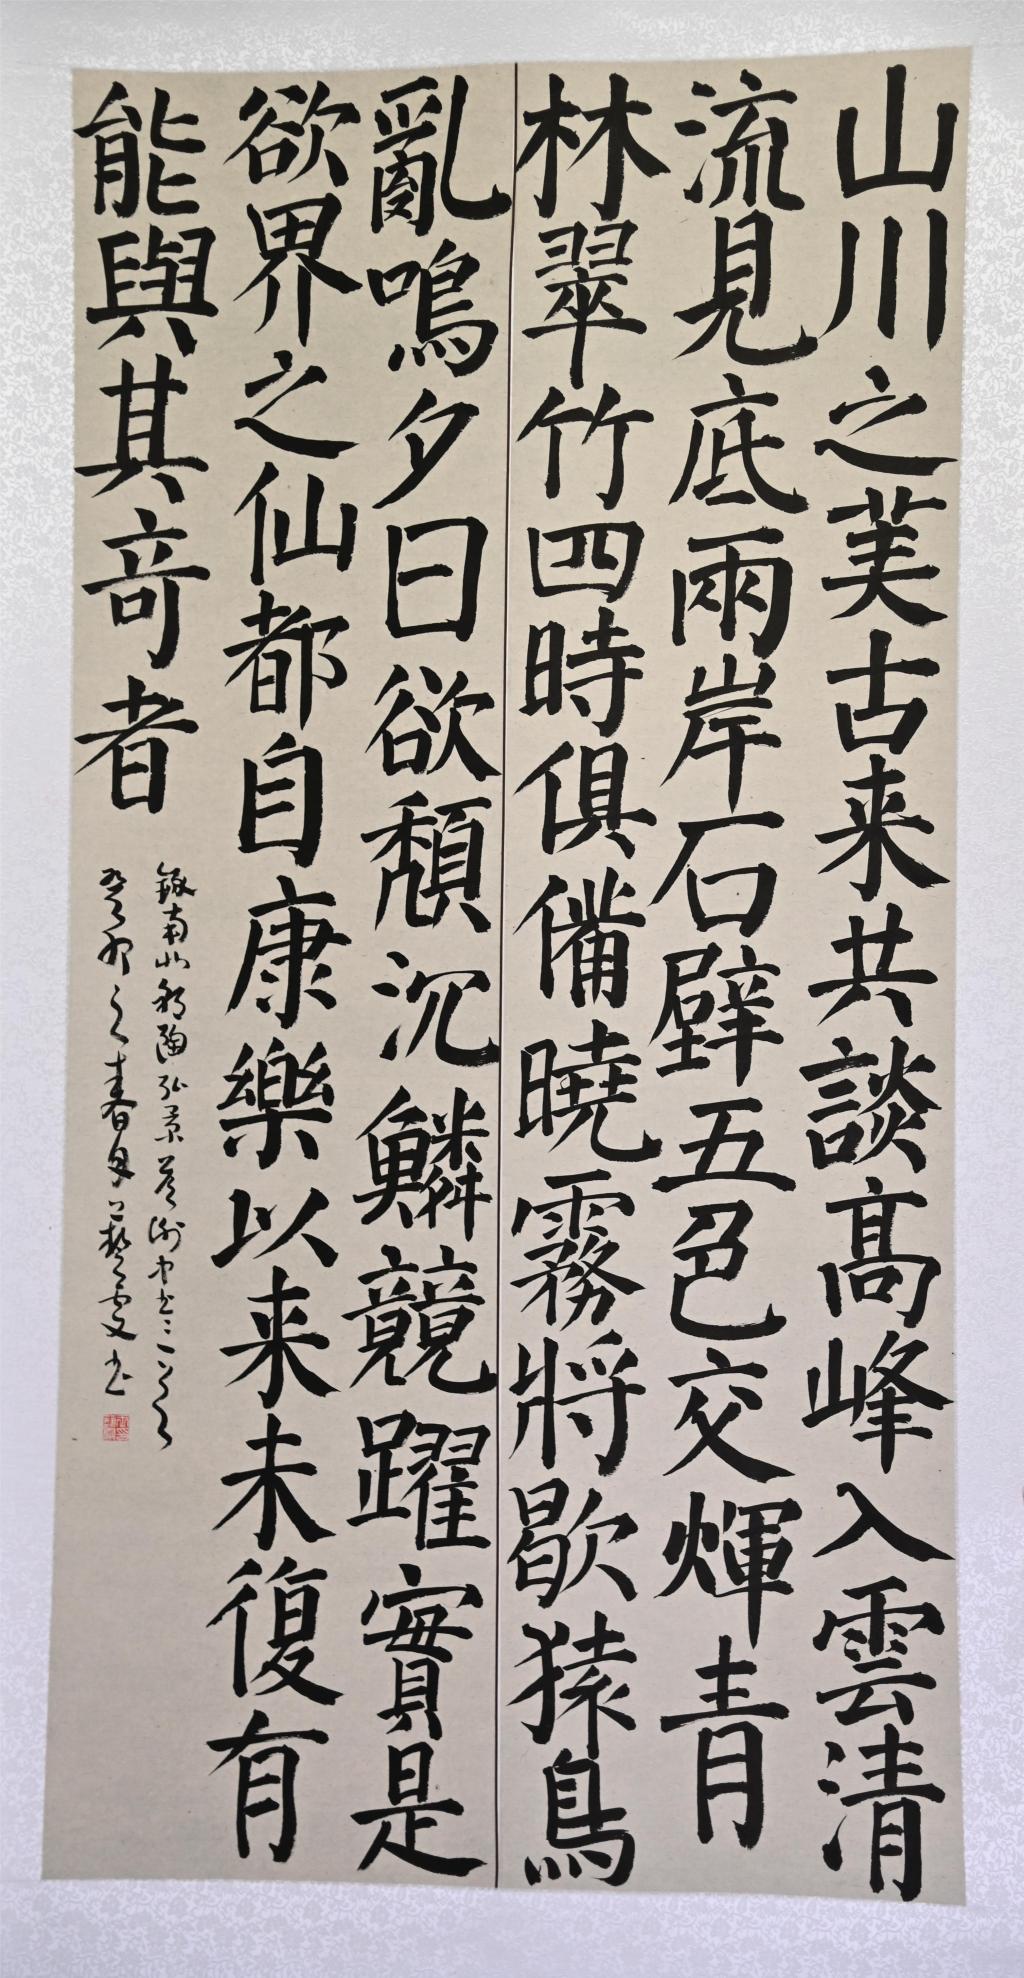 山川之美古来共談高峰入雲清
流見底兩岸石壁五色交輝青
林翠竹四時俱備曉霧將歇猿鳥
亂鳴夕日欲頹沉鱗競躍實是
欲界之仙都自康樂以来未復有
能與其奇者
錄南北朝陶弘景答谢中书
癸卯之春月艺雯书